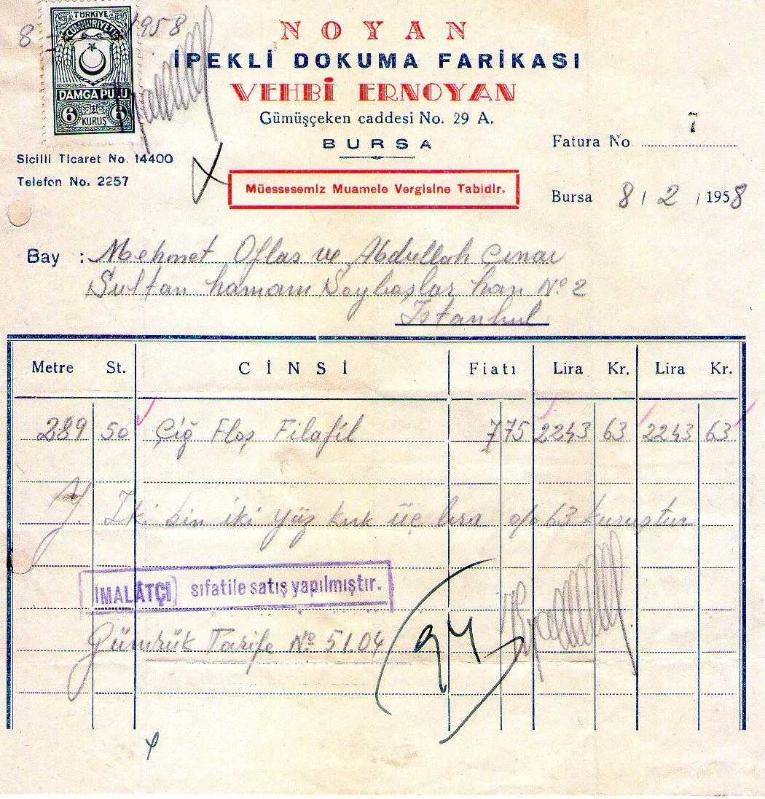 8 1958
TÜRKİYE
CUMHURİYETİ
DAMGA PULU
6 KURUŞ 6
NOYAN
İPEKLİ DOKUMA FARİKASI
VEHBİ ERNOYAN
Gümüşçeken caddesi No. 29 A.
BURSA
Sicilli Ticaret No. 14400
Telefon No. 2257
Fatura No 7
Müessesemiz Muamele Vergisine Tabidir.
Bursa 8/2/1958
Bay : Mehmet Oflas ve Abdullah Çınar
Sultan hamam han No 2
İstanbul
Metre St. CİNSİ Fiatı Lira Kr. Lira Kr.
289 50 Çiğ Floş Filafil 7 75 2243 63 2243 63
Y. İki bin iki yüz kırk üç lira o/o 63 kuruştur
İMALÂTÇI sıfatile satış yapılmıştır.
Gümrük Tarife No 51.04
94